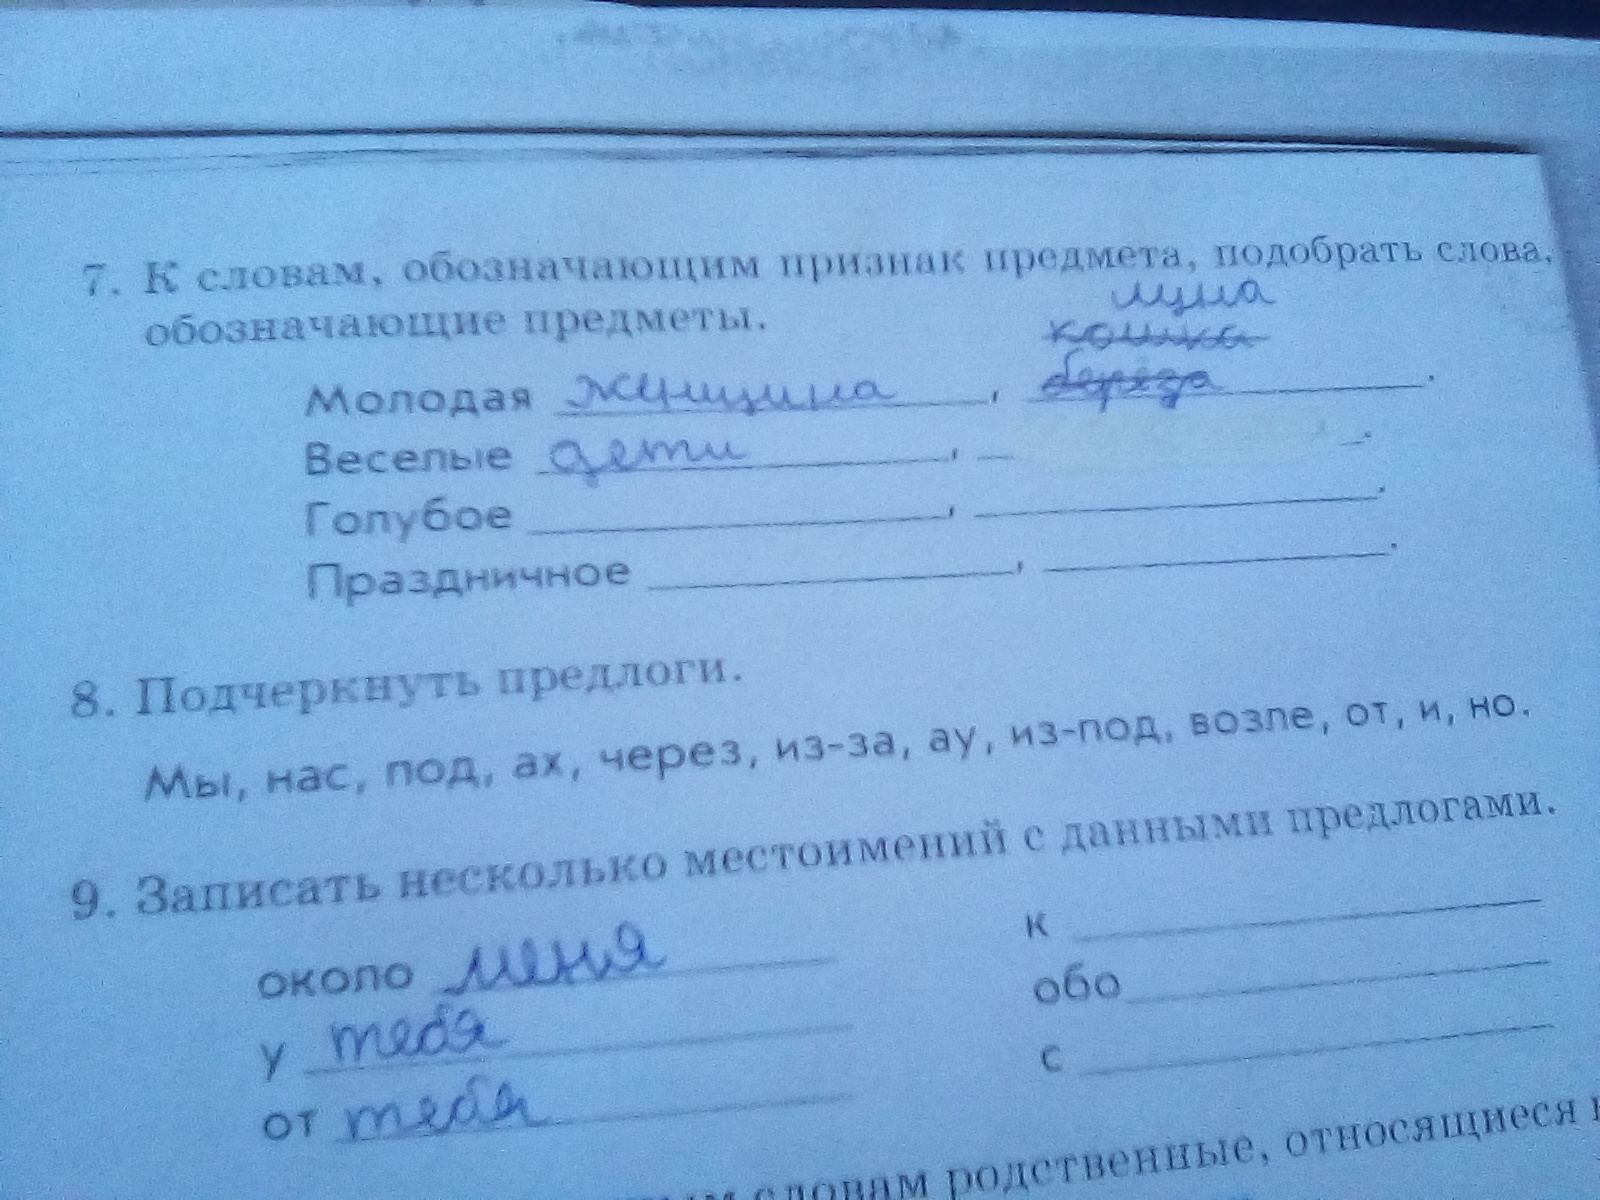 7. К словам, обозначающим признак предмета, подобрать слова,
обозначающие предметы.
луна
кошка
Молодая женщина, береза.
Веселые дети, .
Голубое , .
Праздничное , .
8. Подчеркнуть предлоги.
Мы, нас, под, ах, через, из-за, ау, из-под, возле, от, и, но.
9. Записать несколько местоимений с данными предлогами.
около меня к
у тебя обо
от тебя с
словам родственные, относящиеся